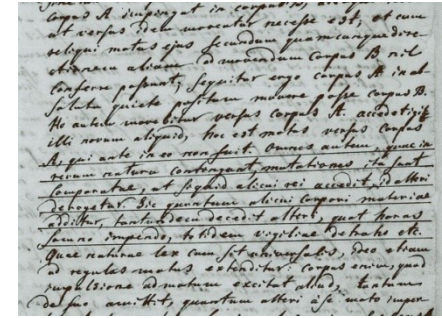 corpus A impingat in corpus B,
ut versus idem moveatur necesse est; et cum
reliqui motus ejus secundum quamcunque dire-
ctionem aliam ad movendum corpus B nil
conferre possunt; sequitur ergo corpus A in ab-
soluta quiete positum movere posse corpus B.
Hoc autem movebitur versus corpus A: accedet igitur
illi novum aliquid, hoc est motus versus corpus
A, qui ante in eo non fuit. Omnes autem, quae in
rerum natura contingunt, mutationes ita sunt
comparatae, ut si quid alicui rei accedit, id alteri
derogetur. Sic quantum alicui corpori materiae
additur, tantundem decedit alteri, quot horas
somno impendo, totidem vigiliae detraho etc.
Quae naturae lex cum sit universalis, ideo etiam
ad regulas motus extenditur: corpus enim, quod
impulsione ad motum excitat aliud, tantum
de suo amittit, quantum alteri a se moto imper